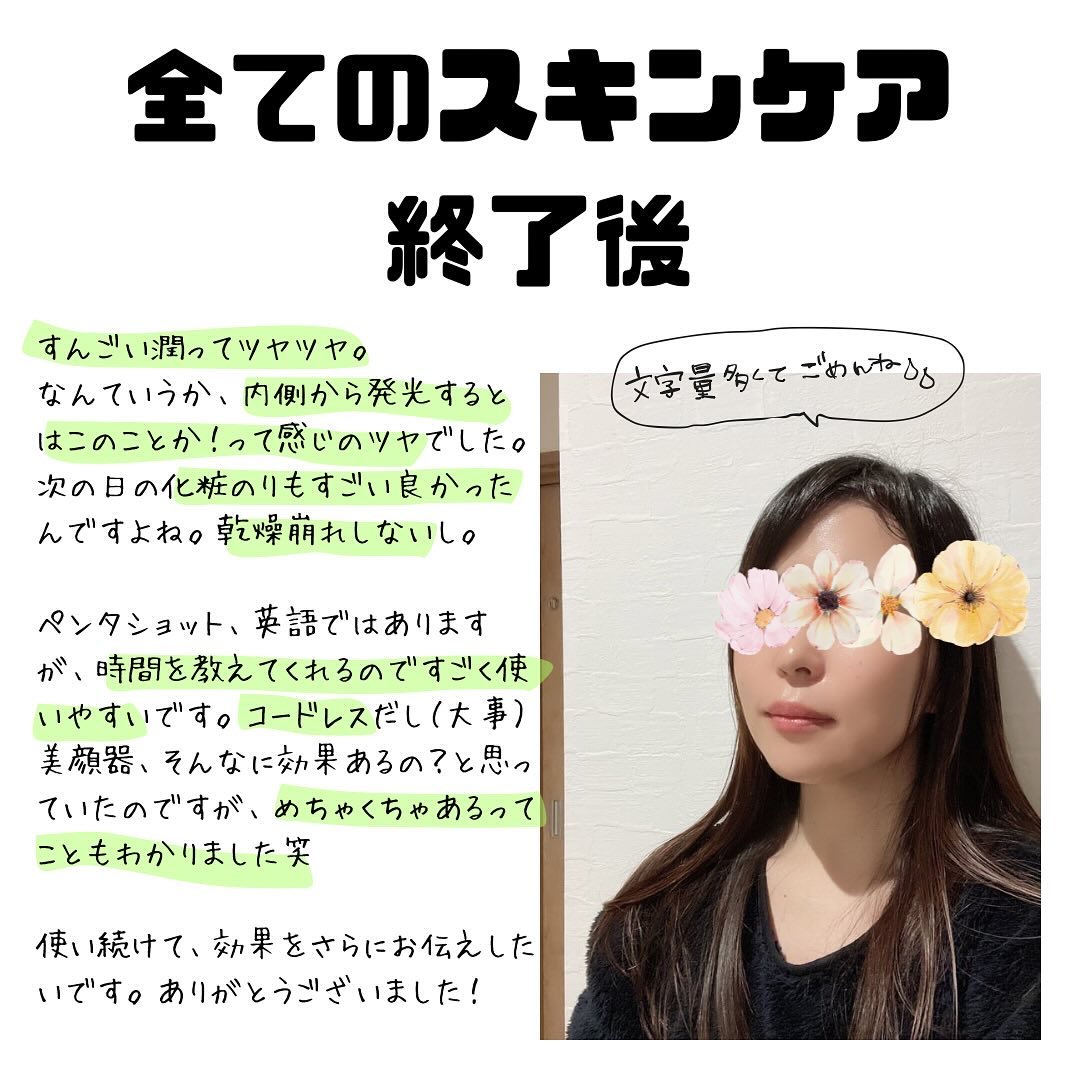 全てのスキンケア
終了後
すんごい潤ってツヤツヤ。
なんていうか、内側から発光すると
はこのことか！って感じのツヤでした。
次の日の化粧のりもすごい良かった
んですよね。乾燥崩れしないし。
ペンタショット、英語ではあります
が、時間を教えてくれるのですごく使
いやすいです。コードレスだし（大事）
美顔器、そんなに効果あるの？と思っ
ていたのですが、めちゃくちゃあるって
こともわかりました笑
使い続けて、効果をさらにお伝えした
いです。ありがとうございました！
文字量多くてごめんね